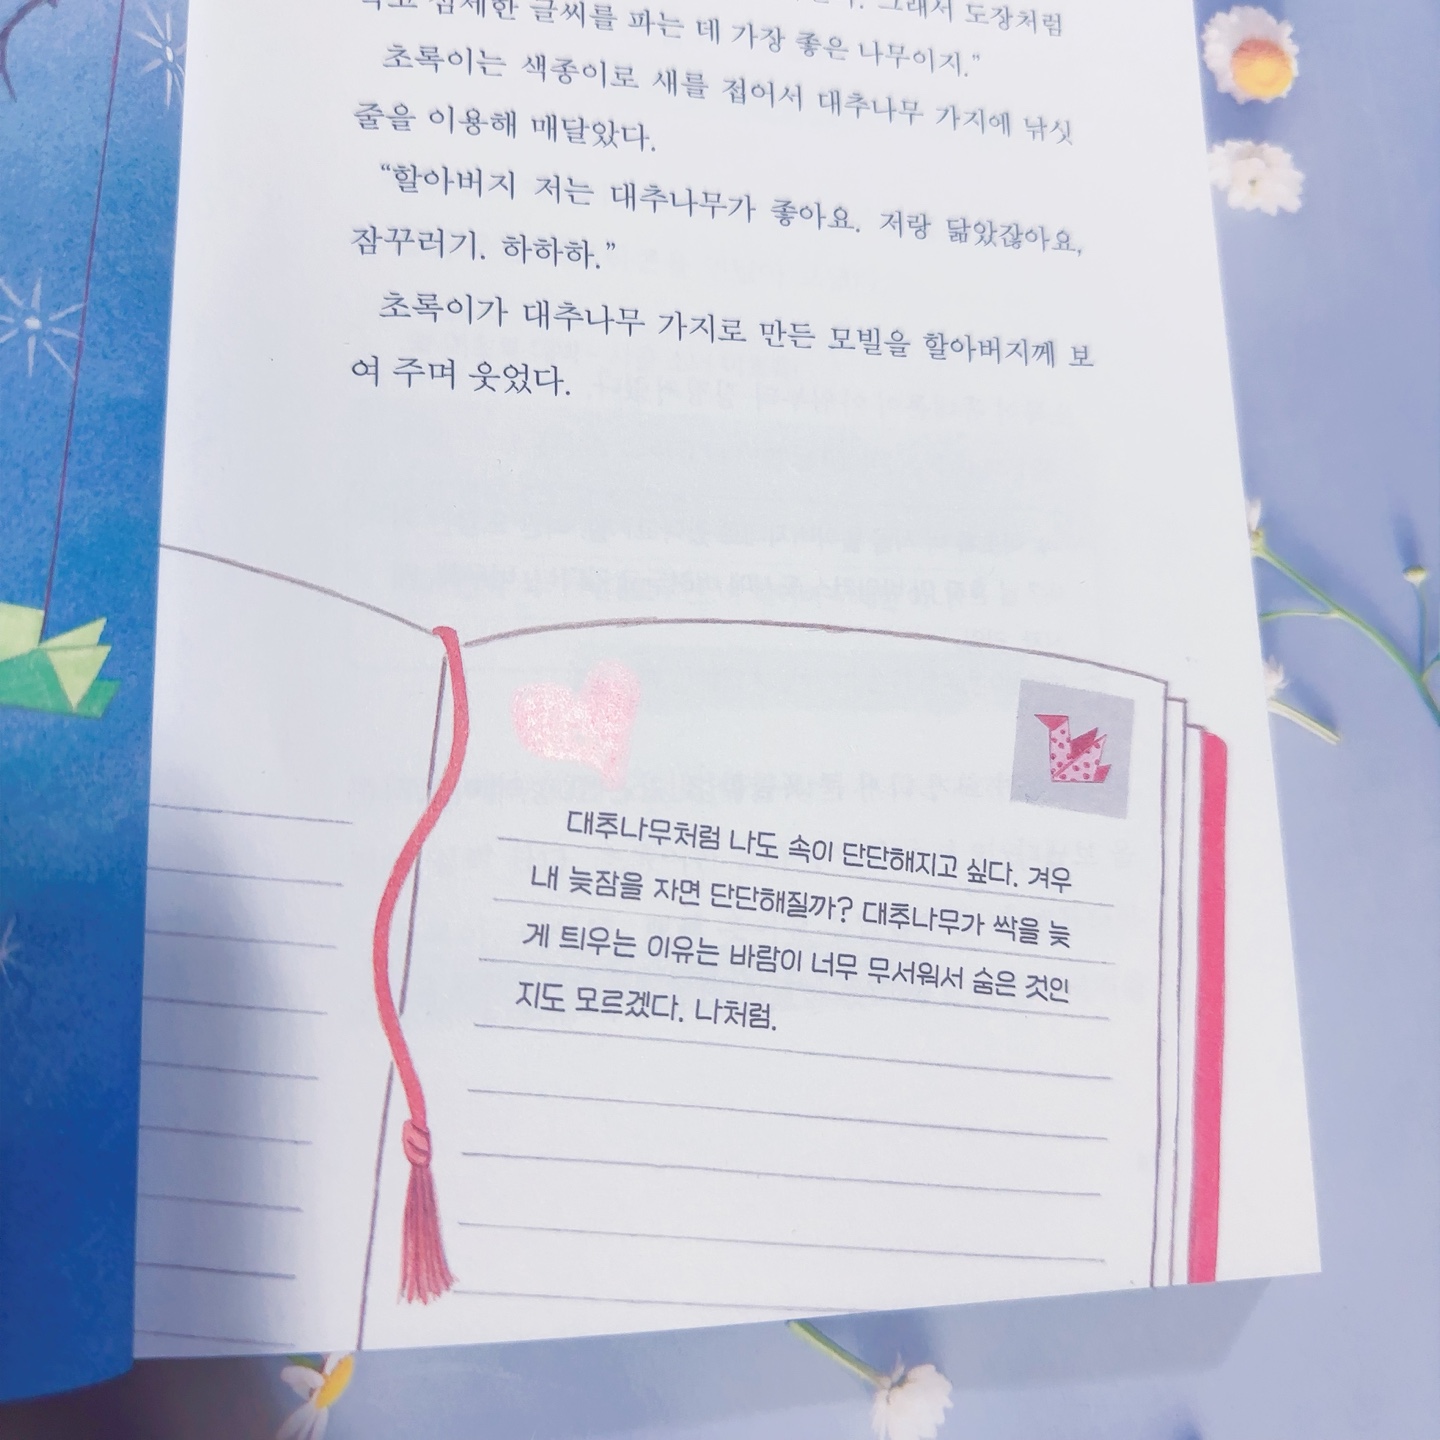 그래서 도장처럼
섬세한 글씨를 파는 데 가장 좋은 나무이지.”
초록이는 색종이로 새를 접어서 대추나무 가지에 낚싯
줄을 이용해 매달았다.
“할아버지 저는 대추나무가 좋아요. 저랑 닮았잖아요,
잠꾸러기. 하하하.”
초록이가 대추나무 가지로 만든 모빌을 할아버지께 보
여 주며 웃었다.
대추나무처럼 나도 속이 단단해지고 싶다. 겨우
내 늦잠을 자면 단단해질까? 대추나무가 싹을 늦
게 틔우는 이유는 바람이 너무 무서워서 숨은 것인
지도 모르겠다. 나처럼.